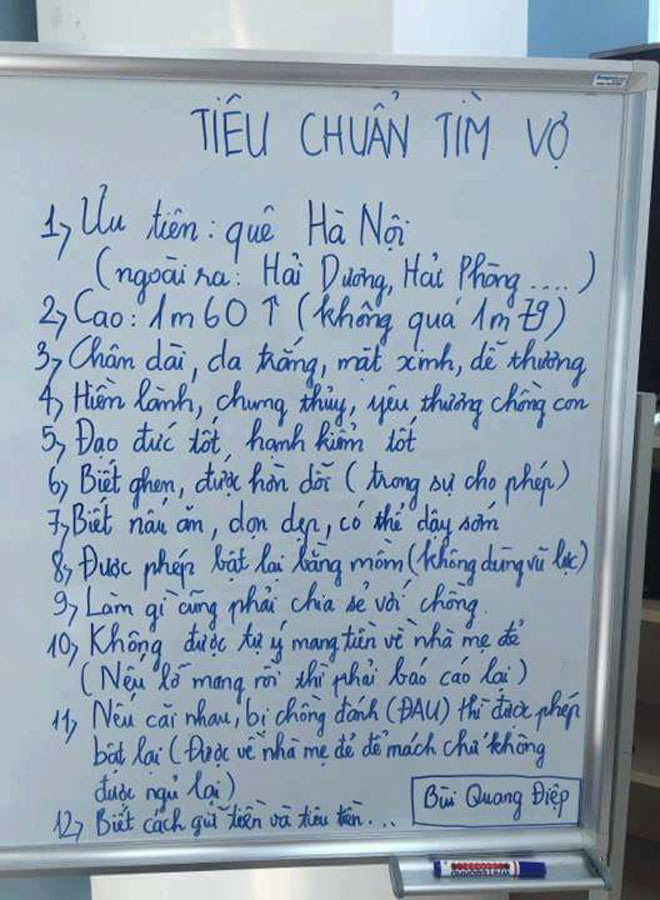 TIÊU CHUẨN TÌM VỢ
1, Ưu tiên: quê Hà Nội
(ngoài ra: Hải Dương, Hải Phòng ....)
2, Cao: 1m60 ↑ (không quá 1m79)
3, Chân dài, da trắng, mặt xinh, dễ thương
4, Hiền lành, chung thủy, yêu thương chồng con
5, Đạo đức tốt, hạnh kiểm tốt
6, Biết ghen, được hờn dỗi (trong sự cho phép)
7, Biết nấu ăn, dọn dẹp, có thể dậy sớm
8, Được phép bật lại bằng mồm (không dùng vũ lực)
9, Làm gì cũng phải chia sẻ với chồng.
10, Không được tự ý mang tiền về nhà mẹ đẻ
(Nếu lỡ mang rồi thì phải báo cáo lại)
11, Nếu cãi nhau, bị chồng đánh (ĐAU) thì được phép
bật lại (Được về nhà mẹ đẻ để mách chứ không
được ngủ lại)
12, Biết cách giữ tiền và tiêu tiền...
Bùi Quang Điệp
WHITEBOARD